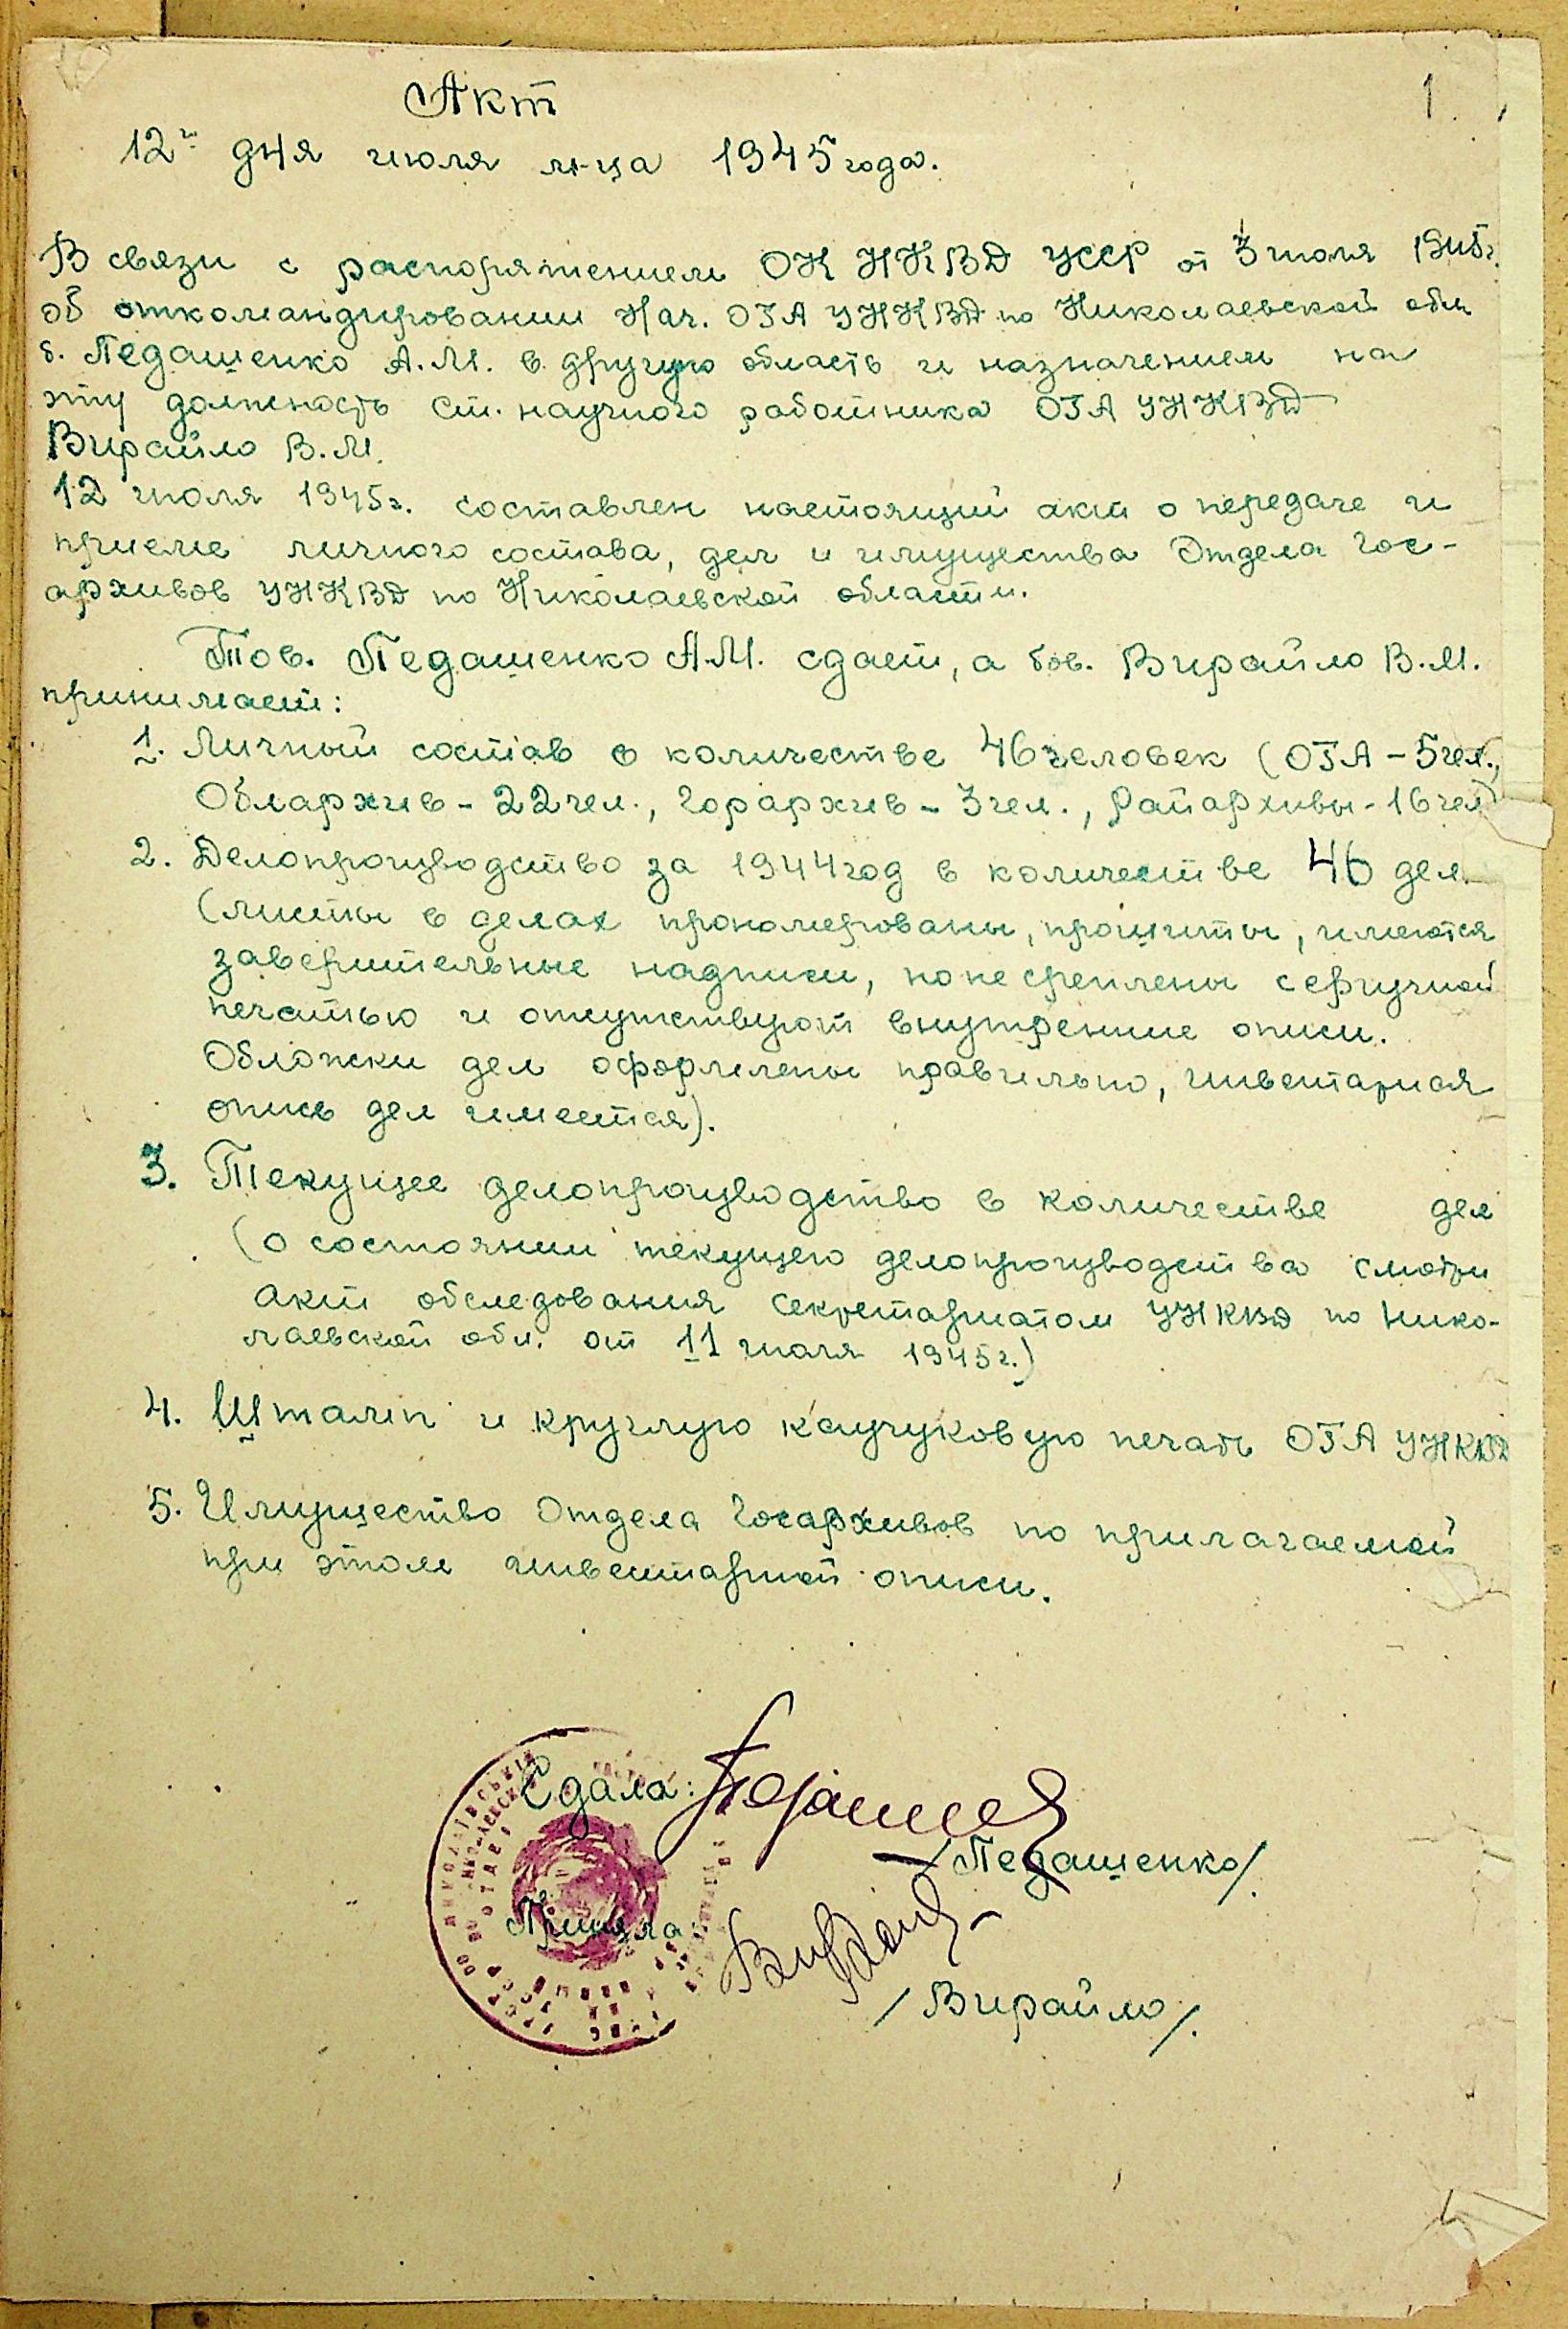 1.
Акт
12го дня июля м-ца 1945 года.
В связи с распоряжением ОК НКВД УССР от 3 июля 1945г.
об откомандировании Нач. ОГА УНКВД по Николаевской обл.
т. Педашенко А.М. в другую область и назначением на
эту должность ст. научного работника ОГА УНКВД
Вирайло В.М.
12 июля 1945г. составлен настоящий акт о передаче и
приеме личного состава, дел и имущества Отдела Гос-
архивов УНКВД по Николаевской области.
Тов. Педашенко А.М. сдает, а тов. Вирайло В.М.
принимает:
1. Личный состав в количестве 46 человек (ОГА – 5 чел.,
Облархив – 22 чел., Горархив – 3 чел., Райархивы – 16 чел)
2. Делопроизводство за 1944 год в количестве 46 дел.
(листы в делах прономерованы, прошиты, имеются
заверительные надписи, но не среплены сергучной
печатью и отсутствуют внутренние описи.
Обложки дел оформлены правильно, инвентарная
опись дел имеется).
3. Текущее делопроизводство в количестве дел
(о состоянии текущего делопроизводства смотри
акт обследования секретариатом УНКВД по Нико-
лаевской обл. от 11 июля 1945г.)
4. Штамп и круглую каучуковую печать ОГА УНКВД
5. Имущество Отдела Госархивов по прилагаемой
при этом инвентарной описи.
Сдала:
/Педашенко/.
Приняла:
/Вирайло/.